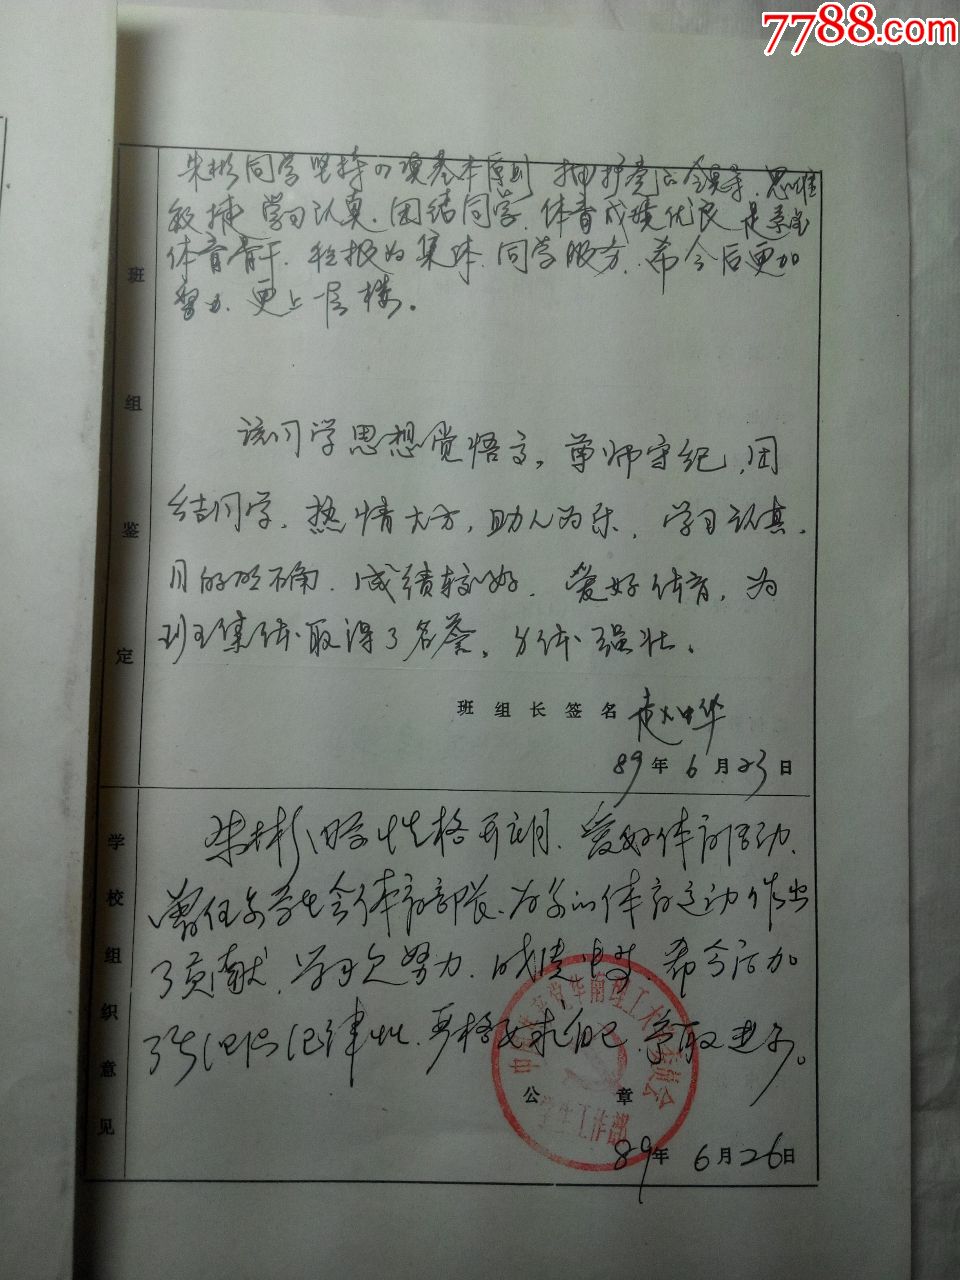 7788.com
朱彬同学坚持四项基本原则 拥护党的领导、思维
敏捷 学习认真、团结同学、体育成绩优良 是系里
体育骨干、积极为集体、同学服务、希今后更加
努力、更上一层楼。
该同学思想觉悟高，尊师守纪，团
结同学，热情大方，助人为乐，学习认真，
目的明确，成绩较好，爱好体育，为
班集体取得了名誉，身体强壮。
班组长签名
89年6月23日
班组鉴定
朱彬同学性格开朗、爱好体育活动、
曾任系学生会体育部长、为系的体育运动作出
了贡献、学习欠努力、成绩中等、希今后加
强组织纪律性、严格要求自己、争取进步。
中国共产党华南理工大学委员会
学生工作部
公章
89年6月26日
学校组织意见